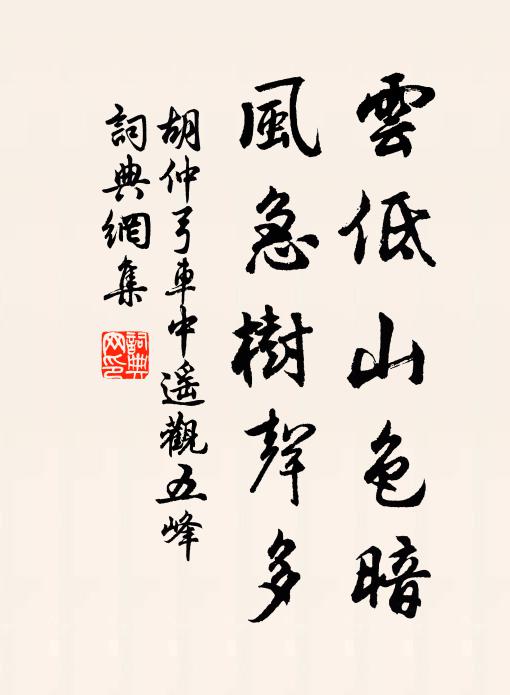 雲低山色暗
風急樹聲多
胡仲弓車中遙觀五峰
詞典網集
詞典
网印